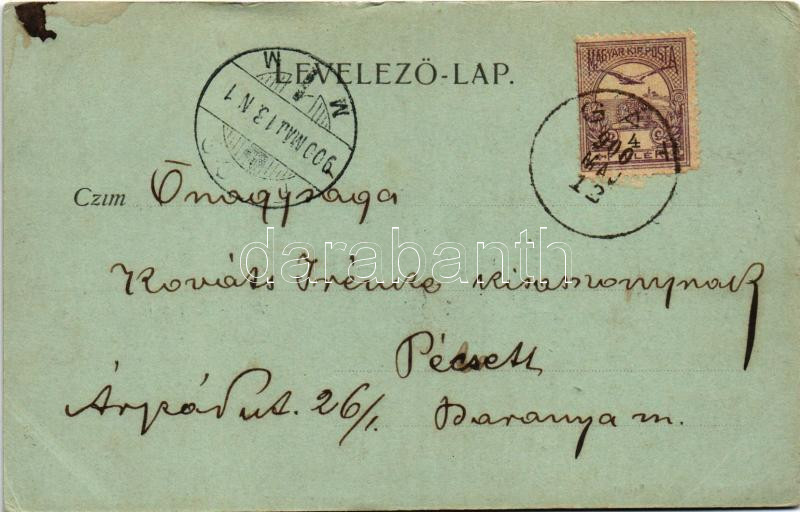 LEVELEZŐ-LAP.
MAGYAR KIR. POSTA
4
FILLÉR
900 MAJ 12
900 MÁJ 13 N 1
M M
Czim Őnagysága
Kováts Irénke kisasszonynak
Pécsett
Árpád ut. 26/1. Baranya m.
darabanth